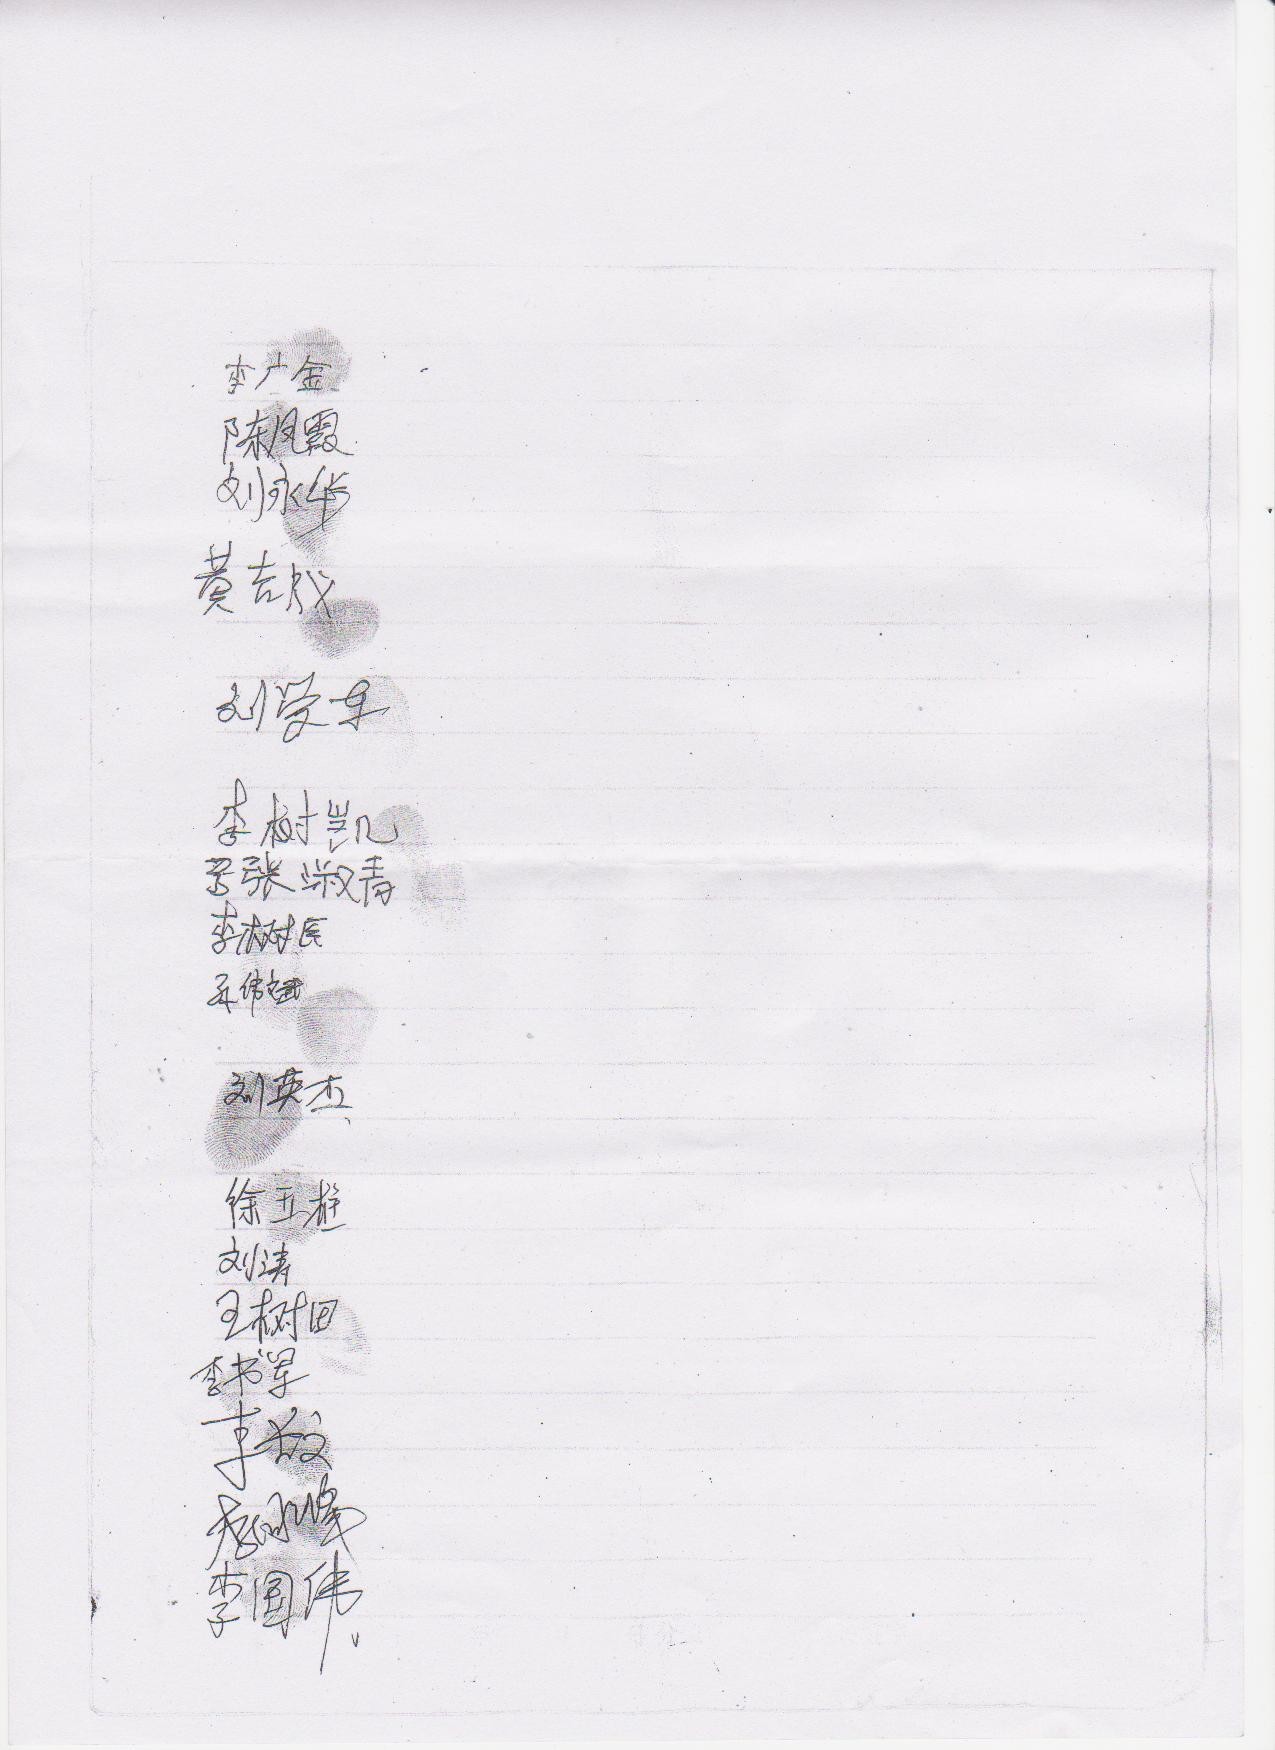 李广金
陈凤霞
刘永华
黄吉
刘学
李树凯
张淑青
李树
伟斌
刘英杰
徐玉柱
刘涛
王树田
李书军
李
李国伟